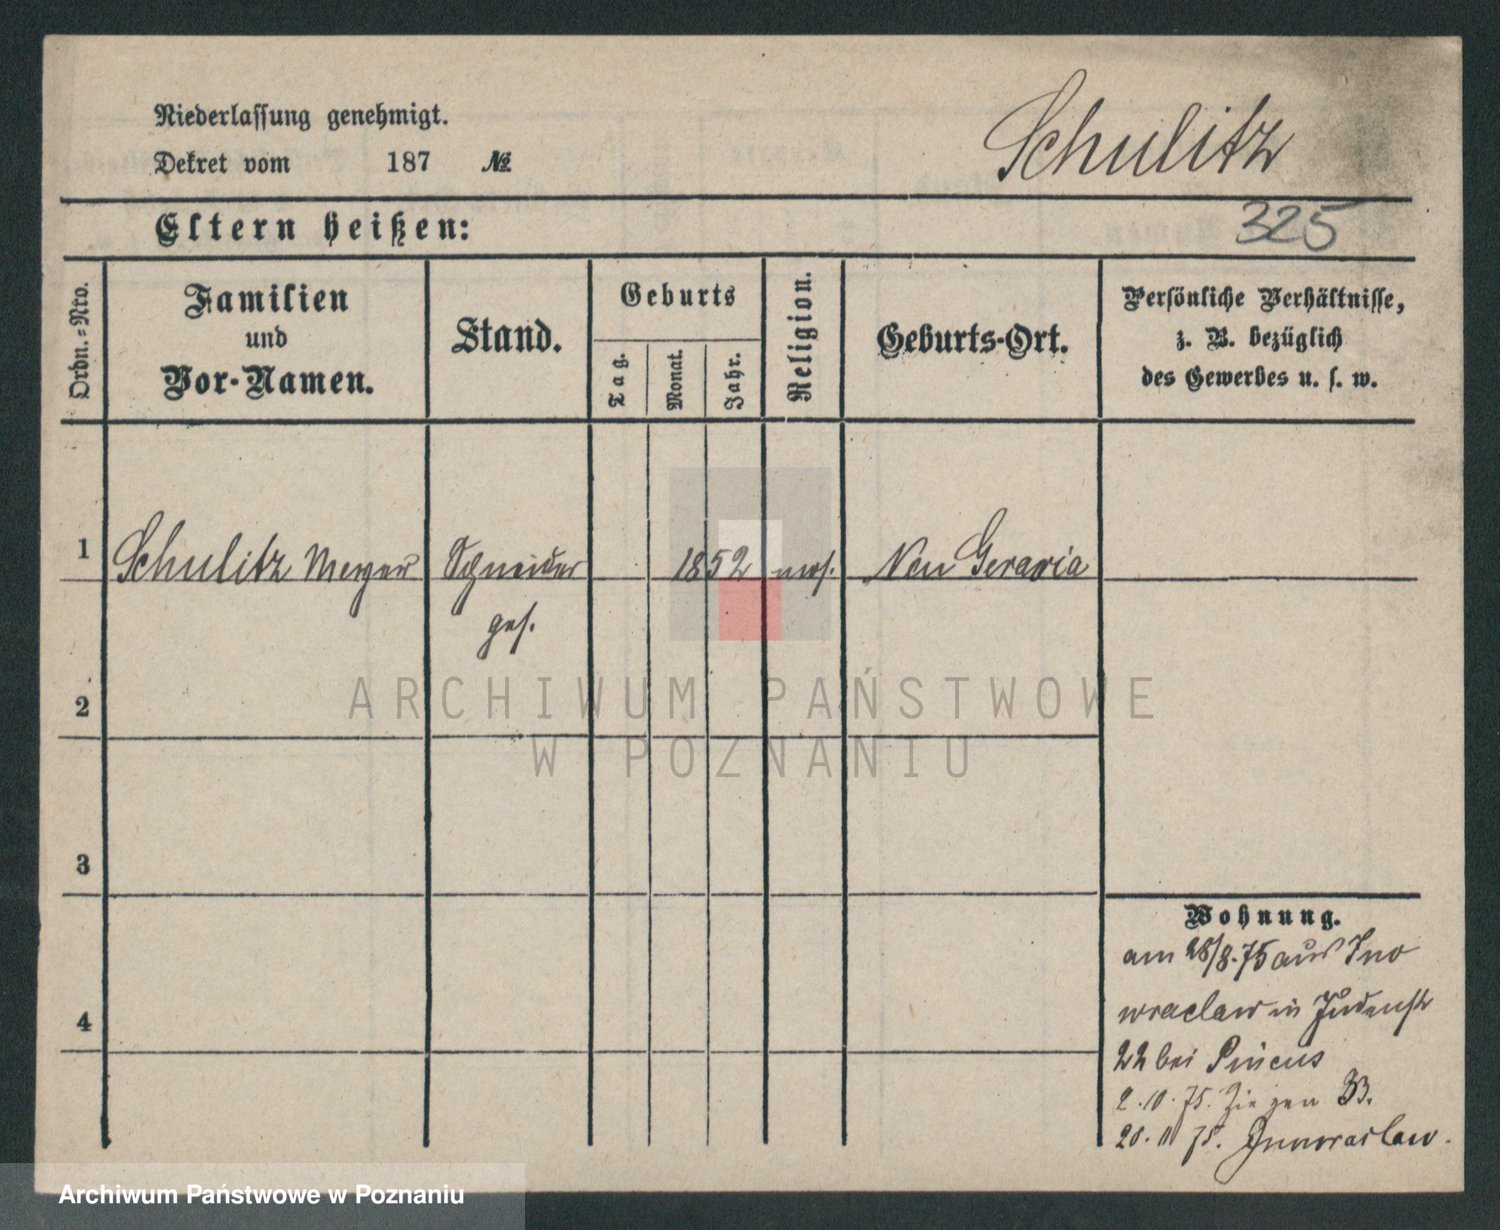 Niederlassung genehmigt.
Dekret vom 187 №
Schulitz
Eltern heißen:
325
Ordn.=Nro.
Familien
und
Vor-Namen.
Stand.
Geburts
Tag.
Monat.
Jahr.
Religion.
Geburts-Ort.
Persönliche Verhältnisse,
z. B. bezüglich
des Gewerbes u. s. w.
1 Schulitz Meyer Schneider 1852 mos. Neu
ges.
2
ARCHIWUM PAŃSTWOWE
W POZNANIU
3
Wohnung.
am 28/8.75 aus Ino
wraclaw in Judenstr
4
22 bei Pincus
2.10.75. B.
20.11 75. Innowraclaw.
Archiwum Państwowe w Poznaniu